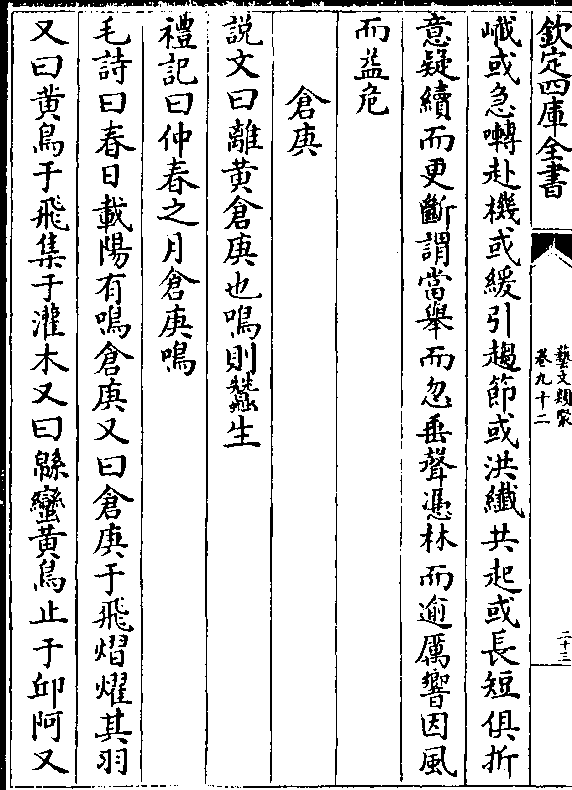 欽定四庫全書
藝文類聚
卷九十二
二十三
巇或急囀赴機或緩引趨節或洪纖共起或長短俱折
意疑續而更斷謂當舉而忽垂聲憑林而逾厲響因風
而益危
倉庚
説文曰離黄倉庚也鳴則蠶生
禮記曰仲春之月倉庚鳴
毛詩曰春日載陽有鳴倉庚又曰倉庚于飛熠燿其羽
又曰黄鳥于飛集于灌木又曰緜蠻黄鳥止于邱阿又